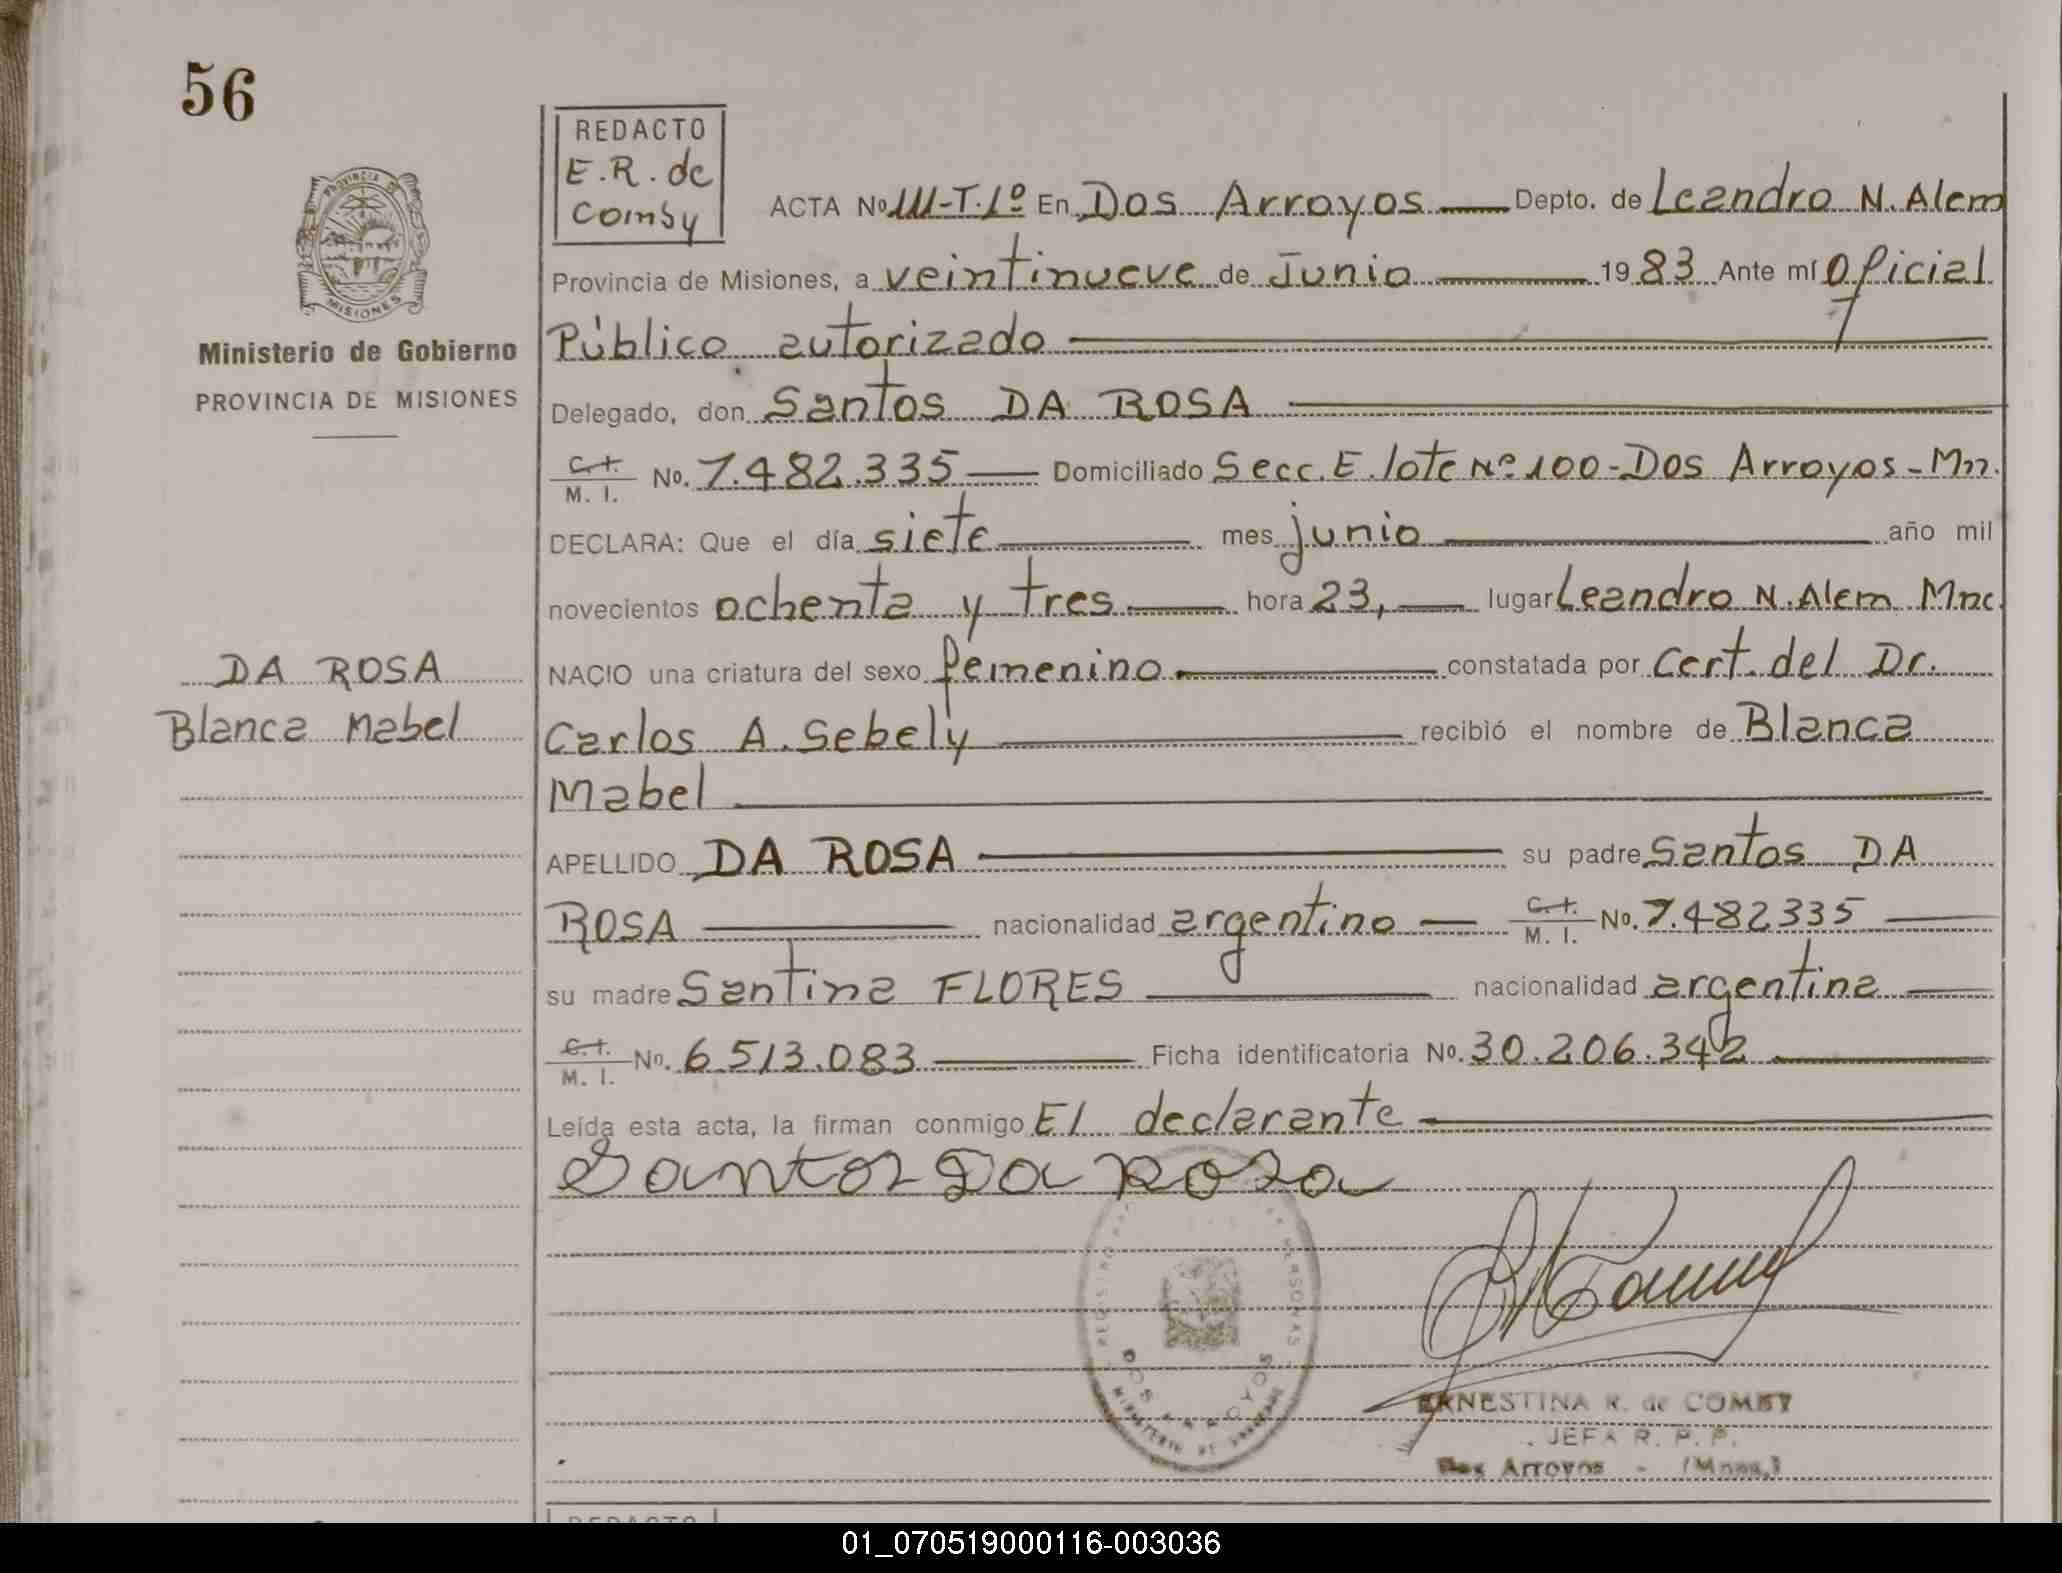 56
PROVINCIA DE
MISIONES
Ministerio de Gobierno
PROVINCIA DE MISIONES
DA ROSA
Blanca Mabel
REDACTO
E.R. de
Comby
ACTA Nº 111-T.1º En Dos Arroyos Depto. de Leandro N. Alem
Provincia de Misiones, a veintinueve de Junio 1983 Ante mí Oficial
Público autorizado
Delegado, don Santos DA ROSA
C.I. M. I. No. 7.482.335 Domiciliado Secc. E. lote Nº 100 - Dos Arroyos - Mnn.
DECLARA: Que el día siete mes junio año mil
novecientos ochenta y tres hora 23, lugar Leandro N. Alem Mnc.
NACIO una criatura del sexo femenino constatada por Cert. del Dr.
Carlos A. Sebely recibió el nombre de Blanca
Mabel
APELLIDO DA ROSA su padre Santos DA
ROSA nacionalidad argentino C.I. M. I. No. 7.482335
su madre Santina FLORES nacionalidad argentina
C.I. M. I. No. 6.513.083 Ficha identificatoria No. 30.206.342
Leída esta acta, la firman conmigo El declarante
Santos Da Rosa
REGISTRO PERSONAS
DOS ARROYOS
MINISTERIO DE GOBIERNO
ERNESTINA R. de COMBY
JEFA R. P. P.
Dos Arroyos - (Mnes.)
REDACTO
01_070519000116-003036